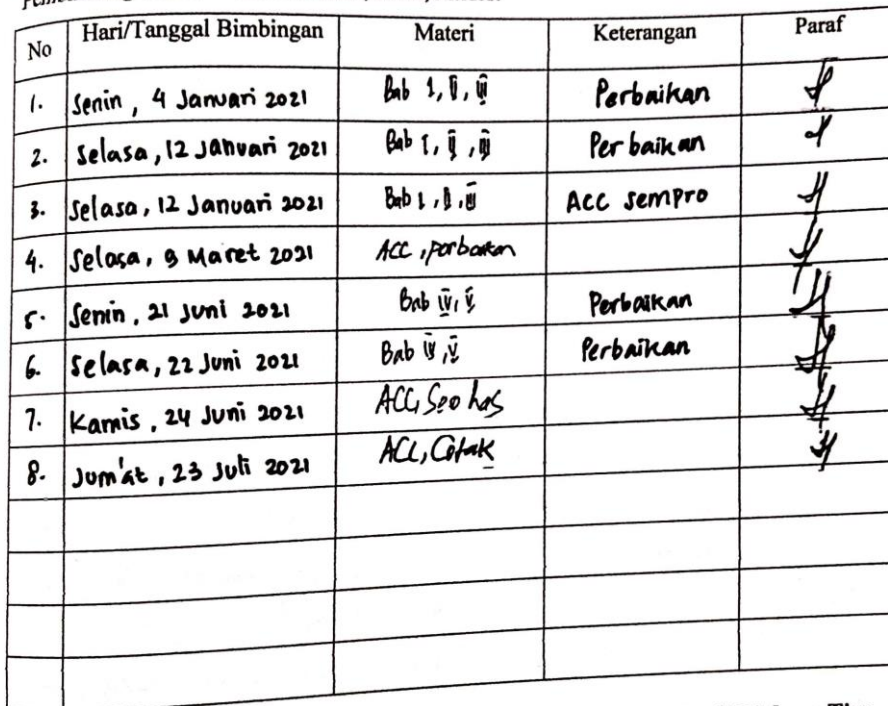 No Hari/Tanggal Bimbingan Materi Keterangan Paraf
1. Senin, 4 Januari 2021 Bab I, II, III Perbaikan
2. Selasa, 12 Januari 2021 Bab I, II, III Perbaikan
3. Selasa, 12 Januari 2021 Bab I, II, III ACC Sempro
4. Selasa, 9 Maret 2021 ACC, perbaikan
5. Senin, 21 Juni 2021 Bab IV, V Perbaikan
6. Selasa, 22 Juni 2021 Bab IV, V Perbaikan
7. Kamis, 24 Juni 2021 ACC, has
8. Jum'at, 23 Juli 2021 ACC, Cetak